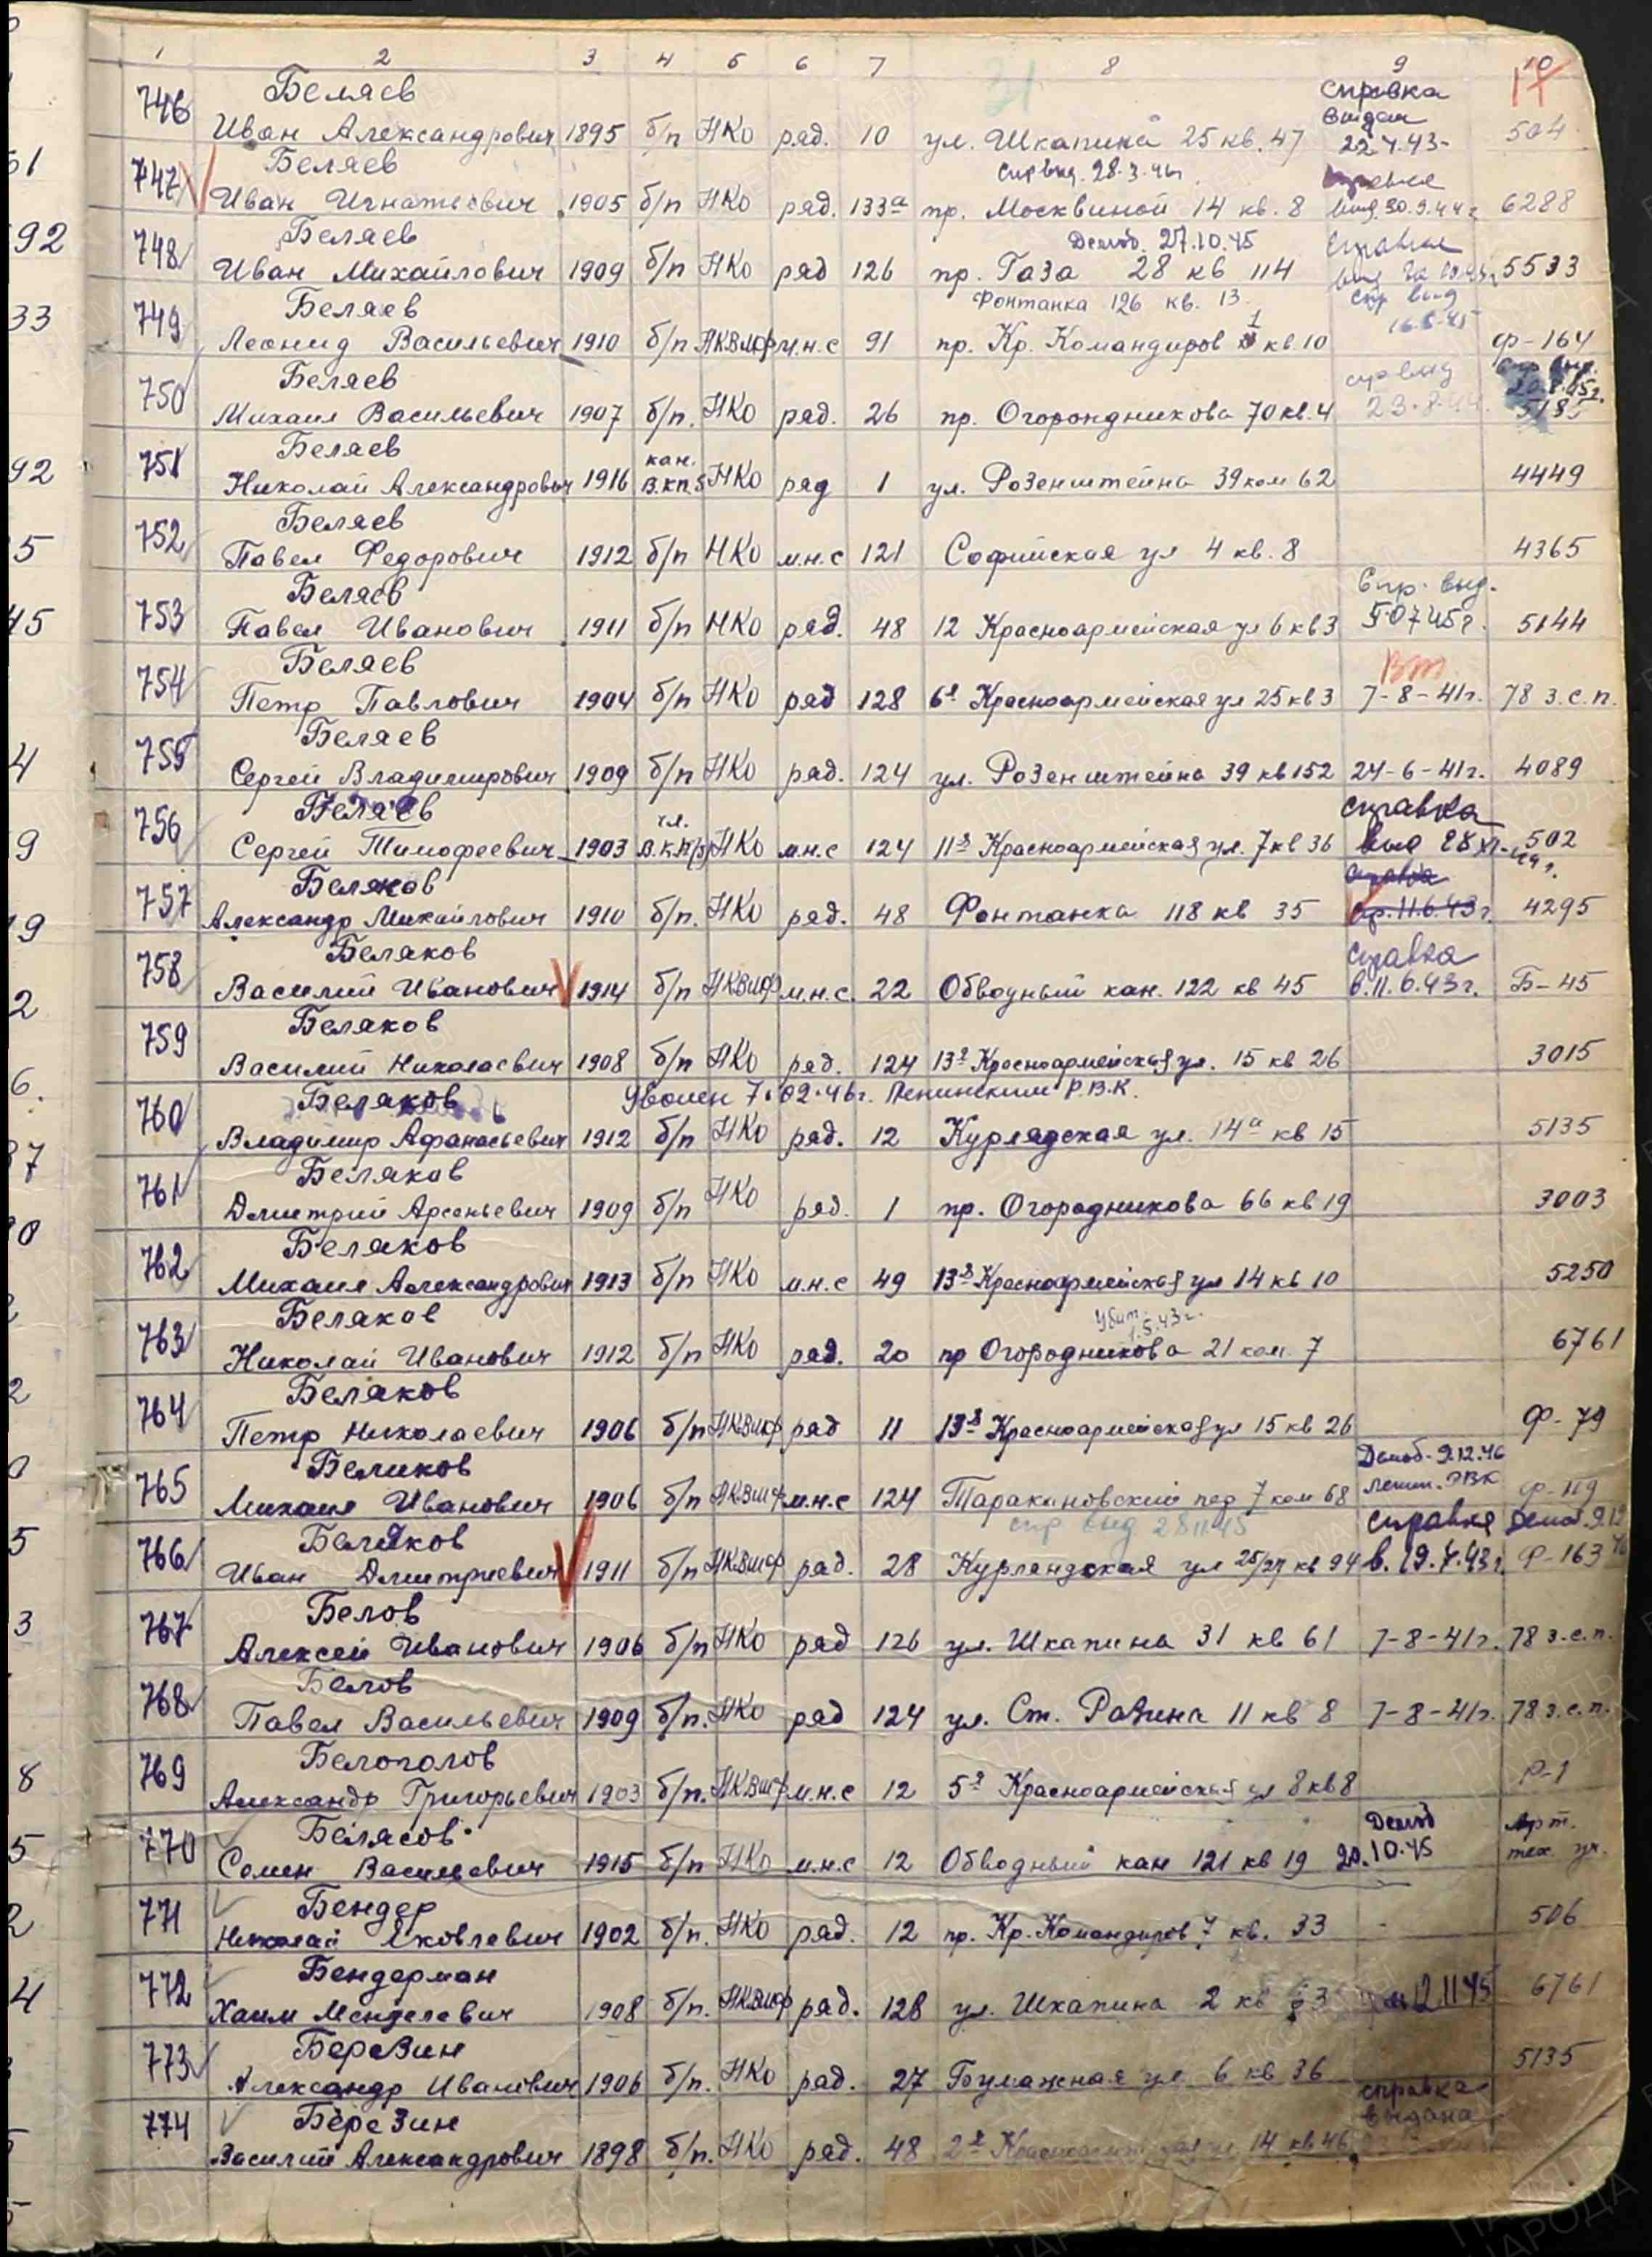 1 2 3 4 5 6 7 8 9 10
17
746 Беляев справка
Иван Александрович 1895 б/п НКО ряд. 10 ул. Шкапина 25 кв. 47 выдан 22.4.43 504
747 Беляев спр выд. 28.3.46г.
Иван Игнатьевич 1905 б/п НКО ряд. 133а пр. Москвиной 14 кв. 8 выд. 30.9.44г 6288
748 Беляев Демоб. 27.10.45 справка
Иван Михайлович 1909 б/п НКО ряд 126 пр. Газа 28 кв 114 5533
749 Беляев Фонтанка 126 кв. 13 спр выд
Леонид Васильевич 1910 б/п НКВМФ м.н.с 91 пр. Кр. Командиров 1 кв 10 16.5.45 Ф-164
750 Беляев спр выд спр выд.
Михаил Васильевич 1907 б/п. НКО ряд. 26 пр. Огорондникова 70 кв. 4 23.8.44. 5185
751 Беляев кан.
Николай Александрович 1916 В.КП.б НКО ряд 1 ул. Розенштейна 39 ком 62 4449
752 Беляев
Павел Федорович 1912 б/п НКО м.н.с 121 Софийская ул 4 кв. 8 4365
753 Беляев Спр. выд.
Павел Иванович 1911 б/п НКО ряд. 48 12 Красноармейская ул 6 кв 3 5.07.45г. 5144
754 Беляев Вт
Петр Павлович 1904 б/п НКО ряд 128 6я Красноармейская ул 25 кв 3 7-8-41г. 78 з.с.п.
755 Беляев
Сергей Владимирович 1909 б/п НКО ряд. 124 ул. Розенштейна 39 кв 152 24-6-41г. 4089
756 Беляев чл. справка
Сергей Тимофеевич 1903 В.К.П/б НКО м.н.с 124 11я Красноармейская ул. 7 кв 36 выд 28 502
757 Беляков справка
Александр Михайлович 1910 б/п. НКО ряд. 48 Фонтанка 118 кв 35 11.6.43г. 4295
758 Беляков справка
Василий Иванович 1914 б/п НКВМФ м.н.с. 22 Обводный кан. 122 кв 45 в.11.6.43г. Б-45
759 Беляков
Василий Николаевич 1908 б/п НКО ряд. 124 13я Красноармейская ул. 15 кв 26 3015
760 Беляков Уволен 7.02.46г. Ленинским Р.В.К.
Владимир Афанасьевич 1912 б/п НКО ряд. 12 Курлядская ул. 14а кв 15 5135
761 Беляков
Дмитрий Арсеньевич 1909 б/п НКО ряд. 1 пр. Огородникова 66 кв 19 3003
762 Беляков
Михаил Александрович 1913 б/п НКО м.н.с 49 13я Красноармейская ул 14 кв 10 5250
763 Беляков Убит 1.5.43г.
Николай Иванович 1912 б/п НКО ряд. 20 пр Огородникова 21 ком. 7 6761
764 Беляков
Петр Николаевич 1906 б/п НКВМФ ряд 11 13я Красноармейская ул 15 кв 26 Ф-79
765 Беликов Демоб. 9.12.46
Михаил Иванович 1906 б/п НКВМФ м.н.с 124 Таракановский пер 7 ком 68 Ленин. РВК Ф-119
766 Беляков спр выд 28 11 45 справка Демоб. 9.12
Иван Дмитриевич 1911 б/п НКВМФ ряд. 28 Курляндская ул 25/27 кв 94 в. 19.4.43г. Ф-163
767 Белов
Алексей Иванович 1906 б/п НКО ряд 126 ул. Шкапина 31 кв 61 7-8-41г. 78 з.с.п.
768 Белов
Павел Васильевич 1909 б/п. НКО ряд 124 ул. Ст. Разина 11 кв 8 7-8-41г. 78 з.с.п.
769 Белоголов
Александр Григорьевич 1903 б/п. НКВМФ м.н.с 12 5я Красноармейская ул 8 кв 8 Р-1
770 Белясов Демоб Арт.
Семен Васильевич 1915 б/п НКО м.н.с 12 Обводный кан 121 кв 19 20.10.45 тех. уч.
771 Бендер
Николай Яковлевич 1902 б/п. НКО ряд. 12 пр. Кр. Командиров 7 кв. 33 506
772 Бендерман
Хаим Менделевич 1908 б/п. НКВМФ ряд. 128 ул. Шкапина 2 кв 12 11 45 6761
773 Березин
Александр Иванович 1906 б/п. НКО ряд. 27 Бумажная ул 6 кв 36 5135
774 Березин справка выдана
Василий Александрович 1898 б/п. НКО ряд. 48 2я 14 кв 46